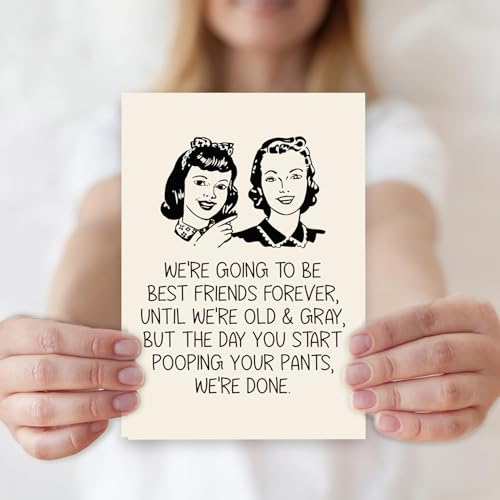 WE'RE GOING TO BE
BEST FRIENDS FOREVER,
UNTIL WE'RE OLD & GRAY,
BUT THE DAY YOU START
POOPING YOUR PANTS,
WE'RE DONE.